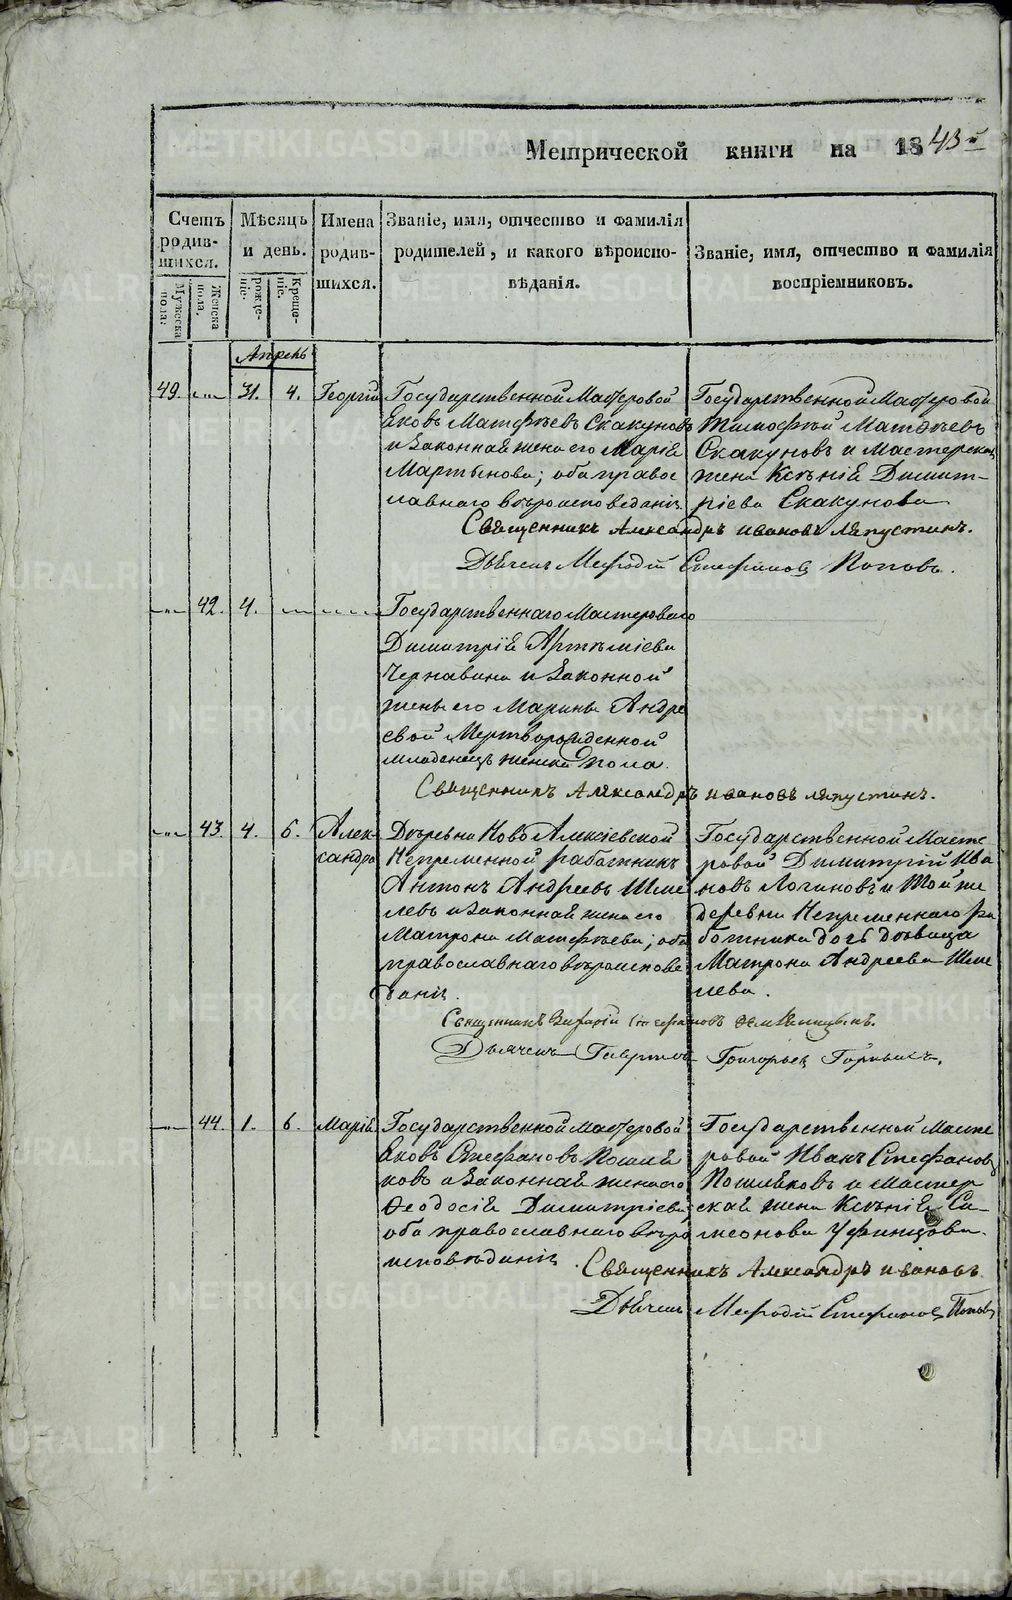 Метрической книги на 1843й
Счетъ родив-шихся.
Мужеска пола:
Женска пола.
Мѣсяцъ и день.
рожде-ніе.
Креще-ніе.
Имена родив-шихся.
Званіе, имя, отчество и фамилія
родителей, и какого вѣроиспо-
вѣданія.
Званіе, имя, отчество и фамилія
воспріемниковъ.
Апрель
49. 31. 4. Георгій
Государственной Мастеровой
Яковъ Матфѣевъ Скакуновъ
и законная жена его Марія
Мартынова; оба правос
лавнаго вѣроисповеданія
Государственной Мастеровой
Тимофѣй Матфѣевъ
Скакуновъ и Мастерская
жена Ксѣнія Димит-
ріева Скакунова
Священникъ Александръ Ивановъ Ляпустинъ.
Дьячекъ Мефодій Стефановъ Поповъ.
42. 4.
Государственнаго Мастероваго
Димитрія Артѣміева
Чернавина и законной
жены его Марины Андре
евой Мертворожденной
младенецъ женска пола.
Священникъ Александръ Ивановъ Ляпустинъ.
43. 4. 6. Алек-
сандра
Дѣревни Ново Алексіевской
Непременной работникъ
Антонъ Андреевъ Шме
левъ и законная жена его
Матрона Матфѣева; оба
православнаго вѣроиспове
данія.
Государственной Масте
ровой Димитрій Ива
новъ Логиновъ и Той же
деревни Непременнаго ра
ботника дочь дѣвица
Матрона Андреева Шме
лева.
Священникъ Стефановъ
Дьячекъ Гавріилъ Григорьевъ Горныхъ.
44. 1. 6. Марія
Государственной Мастеровой
Яковъ Стефановъ Кошел
ковъ и законная жена его
Феодосія Димитріева;
оба православнаго вѣро
исповѣданія
Государственной Масте
ровой Иванъ Стефановъ
Кошелковъ и Мастер
ская жена Ксѣнія Си-
меонова Уфинцова.
Священникъ Александръ Ивановъ
Дьячекъ Мефодій Стефановъ Поповъ
METRIKI.GASO-URAL.RU